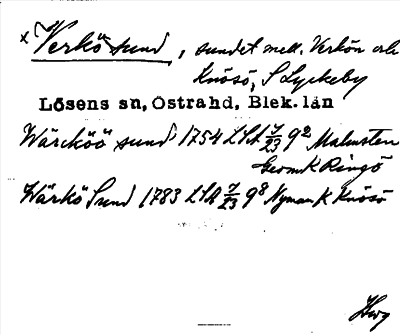 x Verkö sund, sundet mell. Verkön och
Knösö, S Lyckeby
Lösens sn, Östrahd, Blek. län
Wärcköö sund 1754 LSA 7/23 9² Malmsten
GeomK Ringö
Wärkö Sund 1783 LSA 7/23 9⁸ Nyman K Knösö